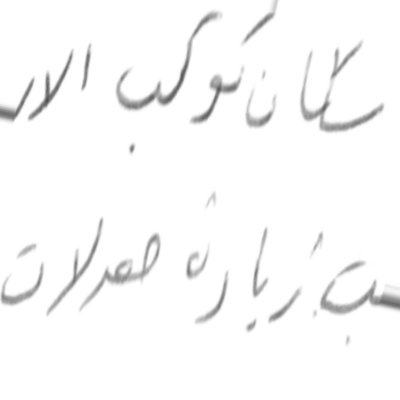 سكان كوكب الار
ب زيادة معدلات